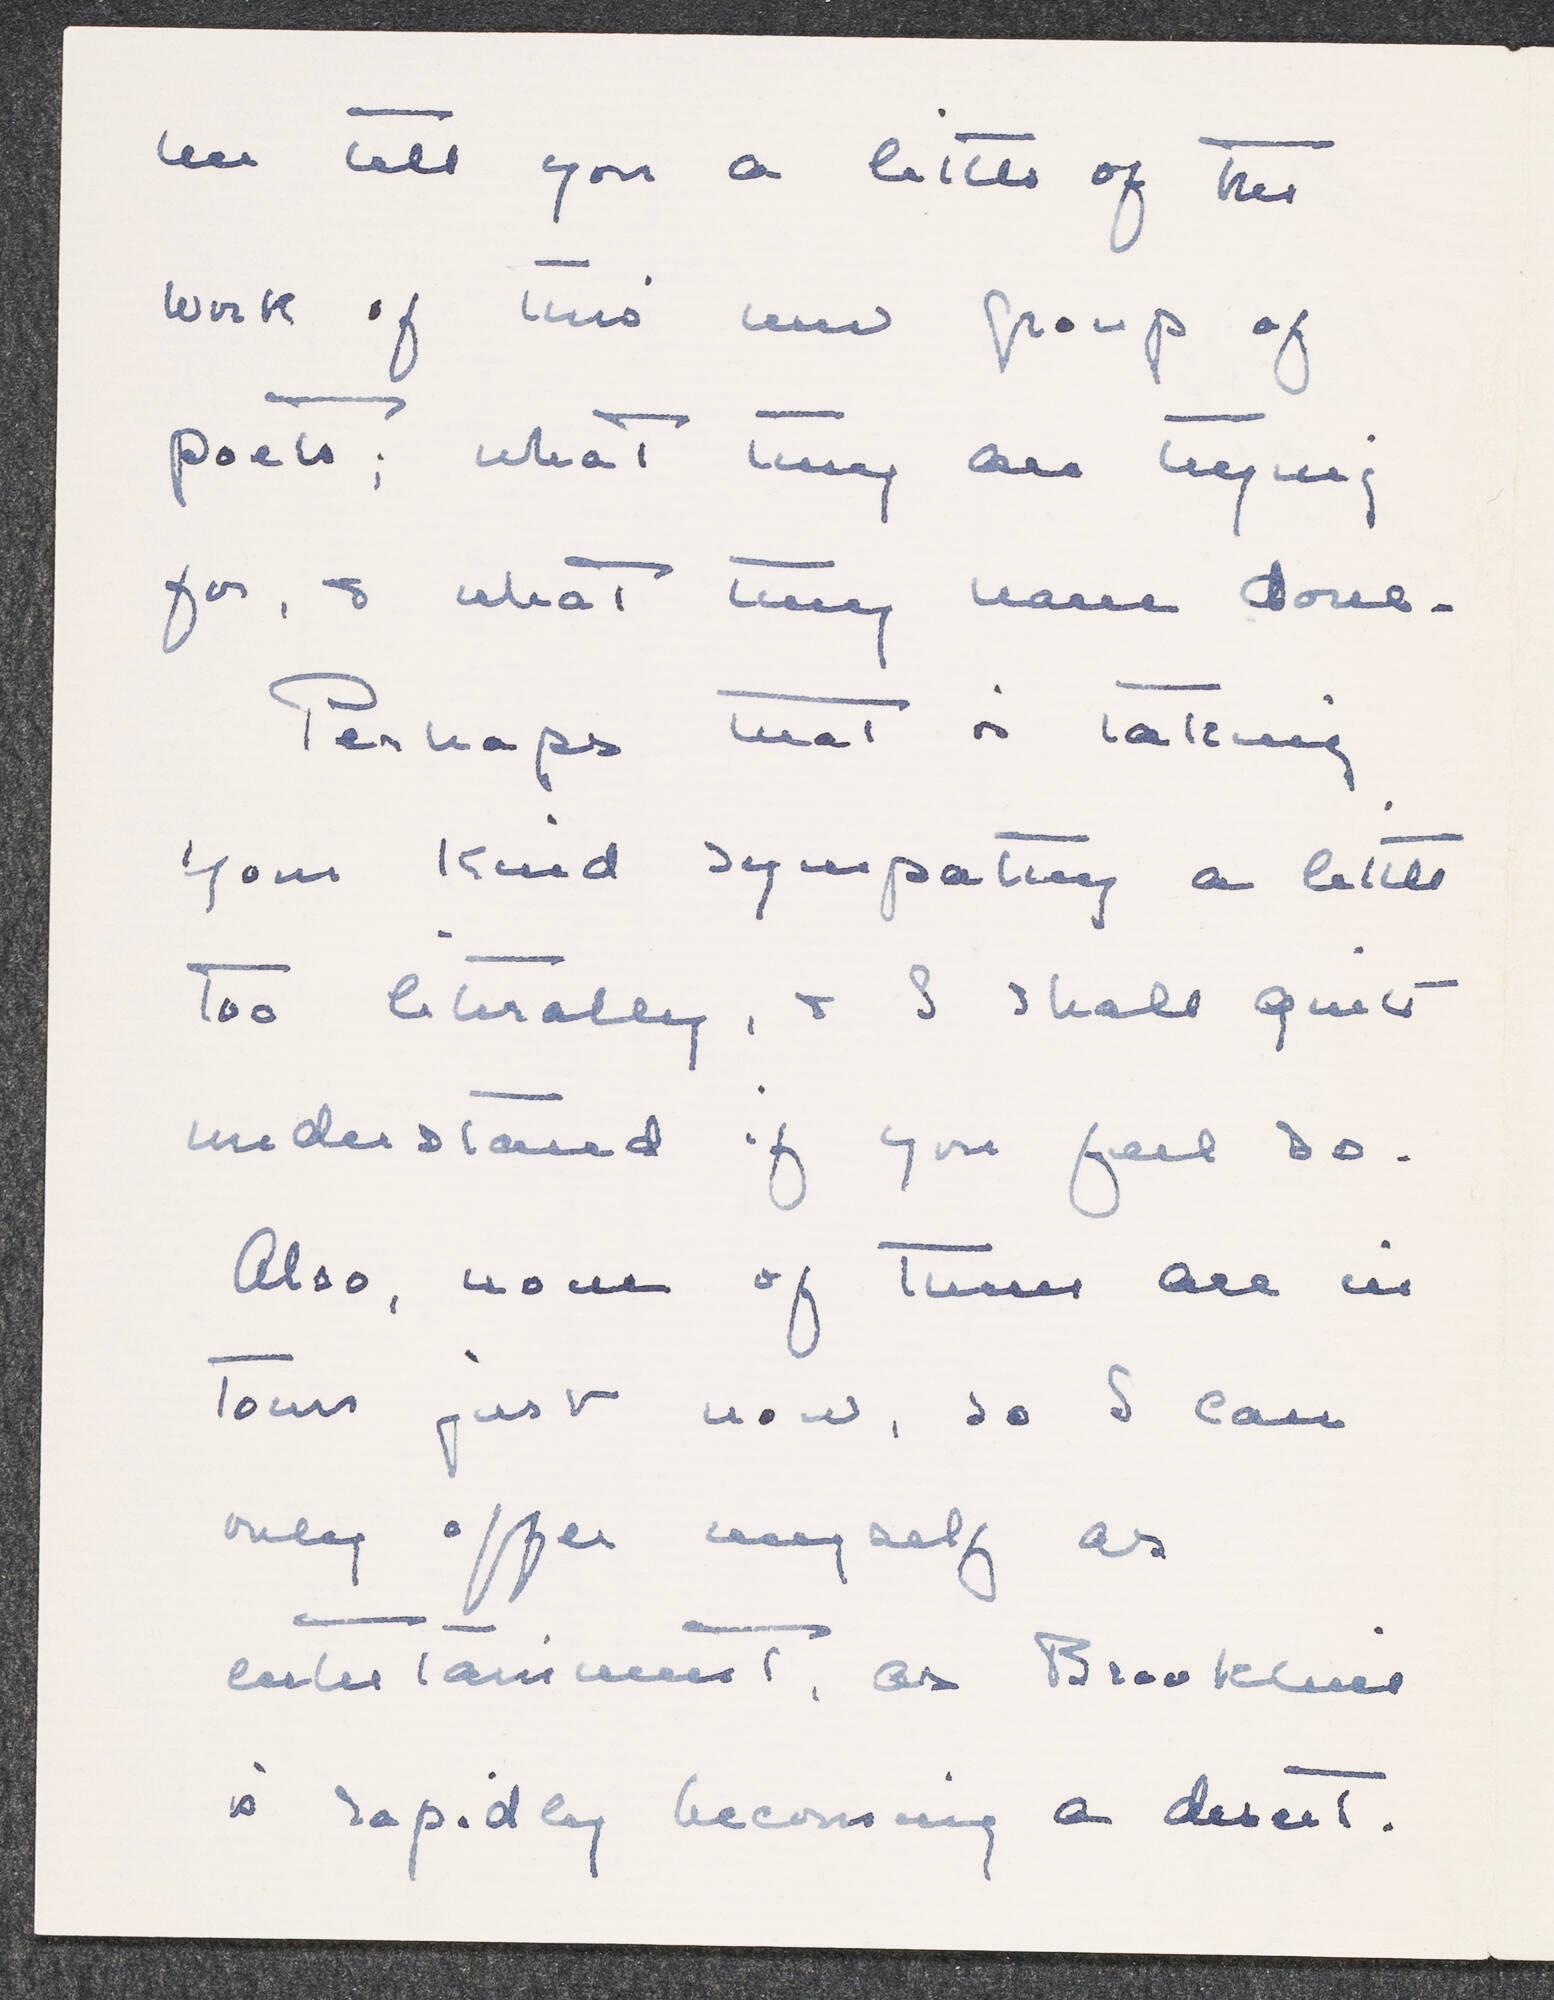 me tell you a little of the
work of this new group of
poets; what they are trying
for, & what they have done.
Perhaps that is taking
your kind sympathy a little
too literally, & I shall quite
understand if you feel so.
Also, none of them are in
town just now, so I can
only offer myself as
entertainment, as Brookline
is rapidly becoming a desert.